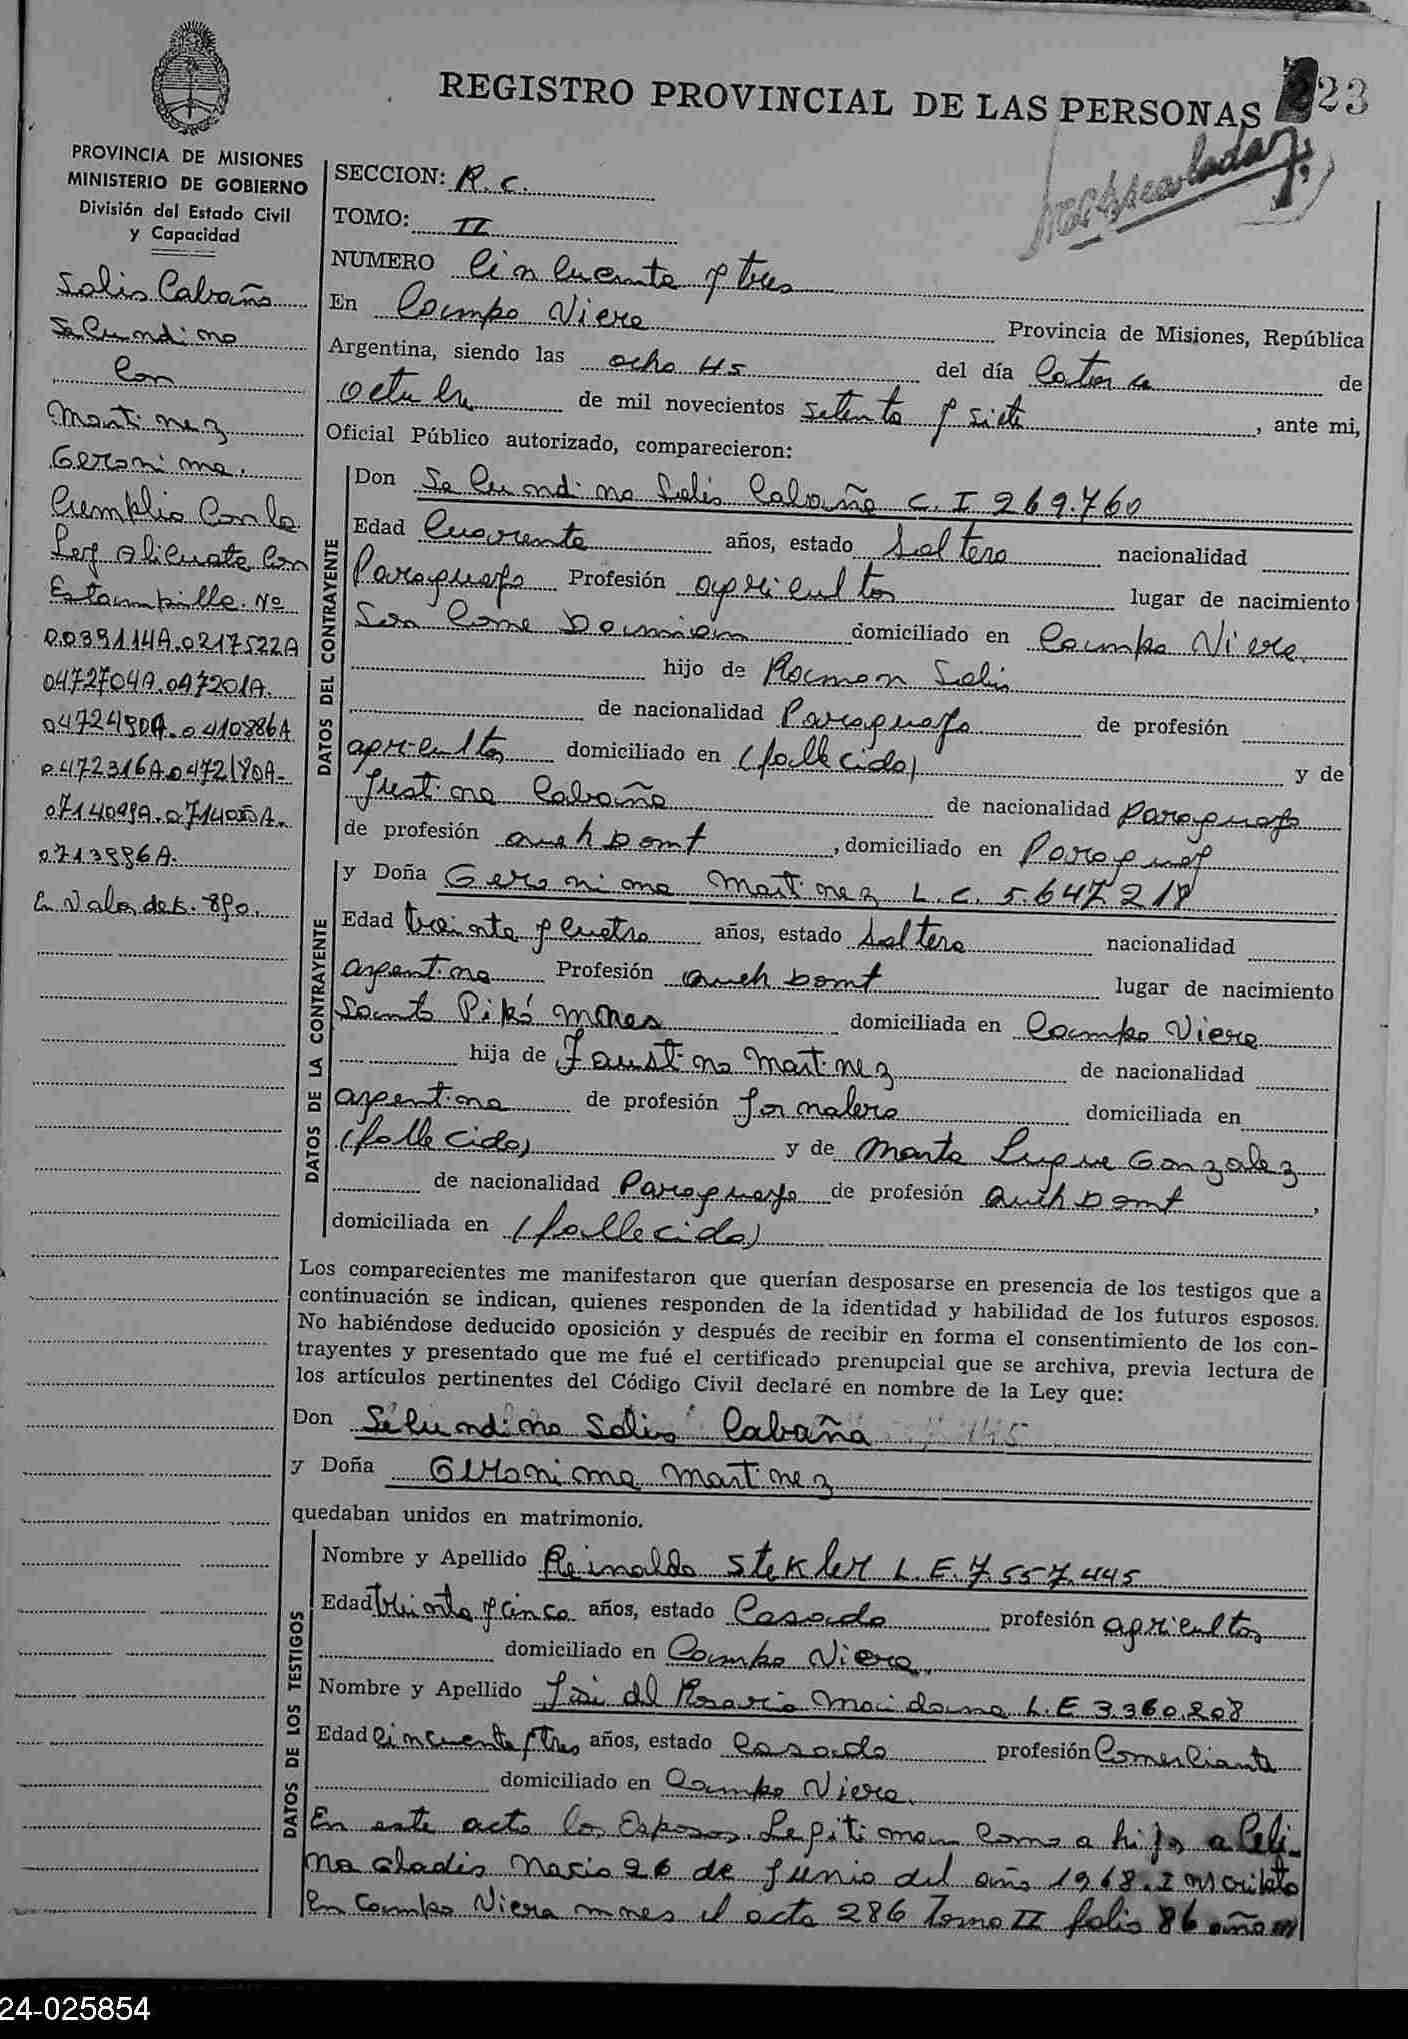 REGISTRO PROVINCIAL DE LAS PERSONAS
23
PROVINCIA DE MISIONES
MINISTERIO DE GOBIERNO
División del Estado Civil
y Capacidad
Solis Cabaña
Secundino
con
Martinez
Geronima.
Cumplio con la
Ley alicuota con
Estampilla. Nº
0217522A
0472704A.
.0410886A
0472316A.
071 .
0713996A.
En Valor de $. 890.
SECCION: R. C.
TOMO: II
NUMERO Cincuenta y tres
En Campo Viera Provincia de Misiones, República
Argentina, siendo las ocho 45 del día Catorce de
octubre de mil novecientos setenta y siete, ante mi,
Oficial Público autorizado, comparecieron:
DATOS DEL CONTRAYENTE
Don Secundino Solis Cabaña C. I 269.760
Edad Cuarenta años, estado Soltero nacionalidad
Paraguayo Profesión agricultor lugar de nacimiento
San Cosme Damian domiciliado en Campo Viera.
hijo de Ramon Solis
de nacionalidad Paraguayo de profesión
agricultor domiciliado en (fallecido) y de
Justina Cabaña de nacionalidad Paraguaya
de profesión domt, domiciliado en Paraguay
DATOS DE LA CONTRAYENTE
y Doña Geronima Martinez L. C. 5.647.218
Edad treinta y cuatro años, estado Soltera nacionalidad
argentina Profesión domt lugar de nacimiento
Santo Pipó Mnes domiciliada en Campo Viera
hija de Faustino Martinez de nacionalidad
argentino de profesión Jornalero domiciliada en
(fallecido) y de Marta Luque Gonzalez
de nacionalidad Paraguaya de profesión domt,
domiciliada en (fallecida)
Los comparecientes me manifestaron que querían desposarse en presencia de los testigos que a
continuación se indican, quienes responden de la identidad y habilidad de los futuros esposos.
No habiéndose deducido oposición y después de recibir en forma el consentimiento de los con-
trayentes y presentado que me fué el certificado prenupcial que se archiva, previa lectura de
los artículos pertinentes del Código Civil declaré en nombre de la Ley que:
Don Secundino Solis Cabaña
y Doña Geronima Martinez
quedaban unidos en matrimonio.
DATOS DE LOS TESTIGOS
Nombre y Apellido Reinaldo Stekler L. E. 7.557.445
Edad treinta y cinco años, estado Casado profesión agricultor
domiciliado en Campo Viera.
Nombre y Apellido José del Rosario Maidana L. E 3.360.208
Edad cincuenta y tres años, estado Casado profesión Comerciante
domiciliado en Campo Viera.
En este acto los Esposos. Legitiman como a hija a Celi-
na Gladis Nacio 26 de Junio del año 1968. Inscripta
en Campo Viera mnes el acta 286 Tomo II folio 86 año
24-025854